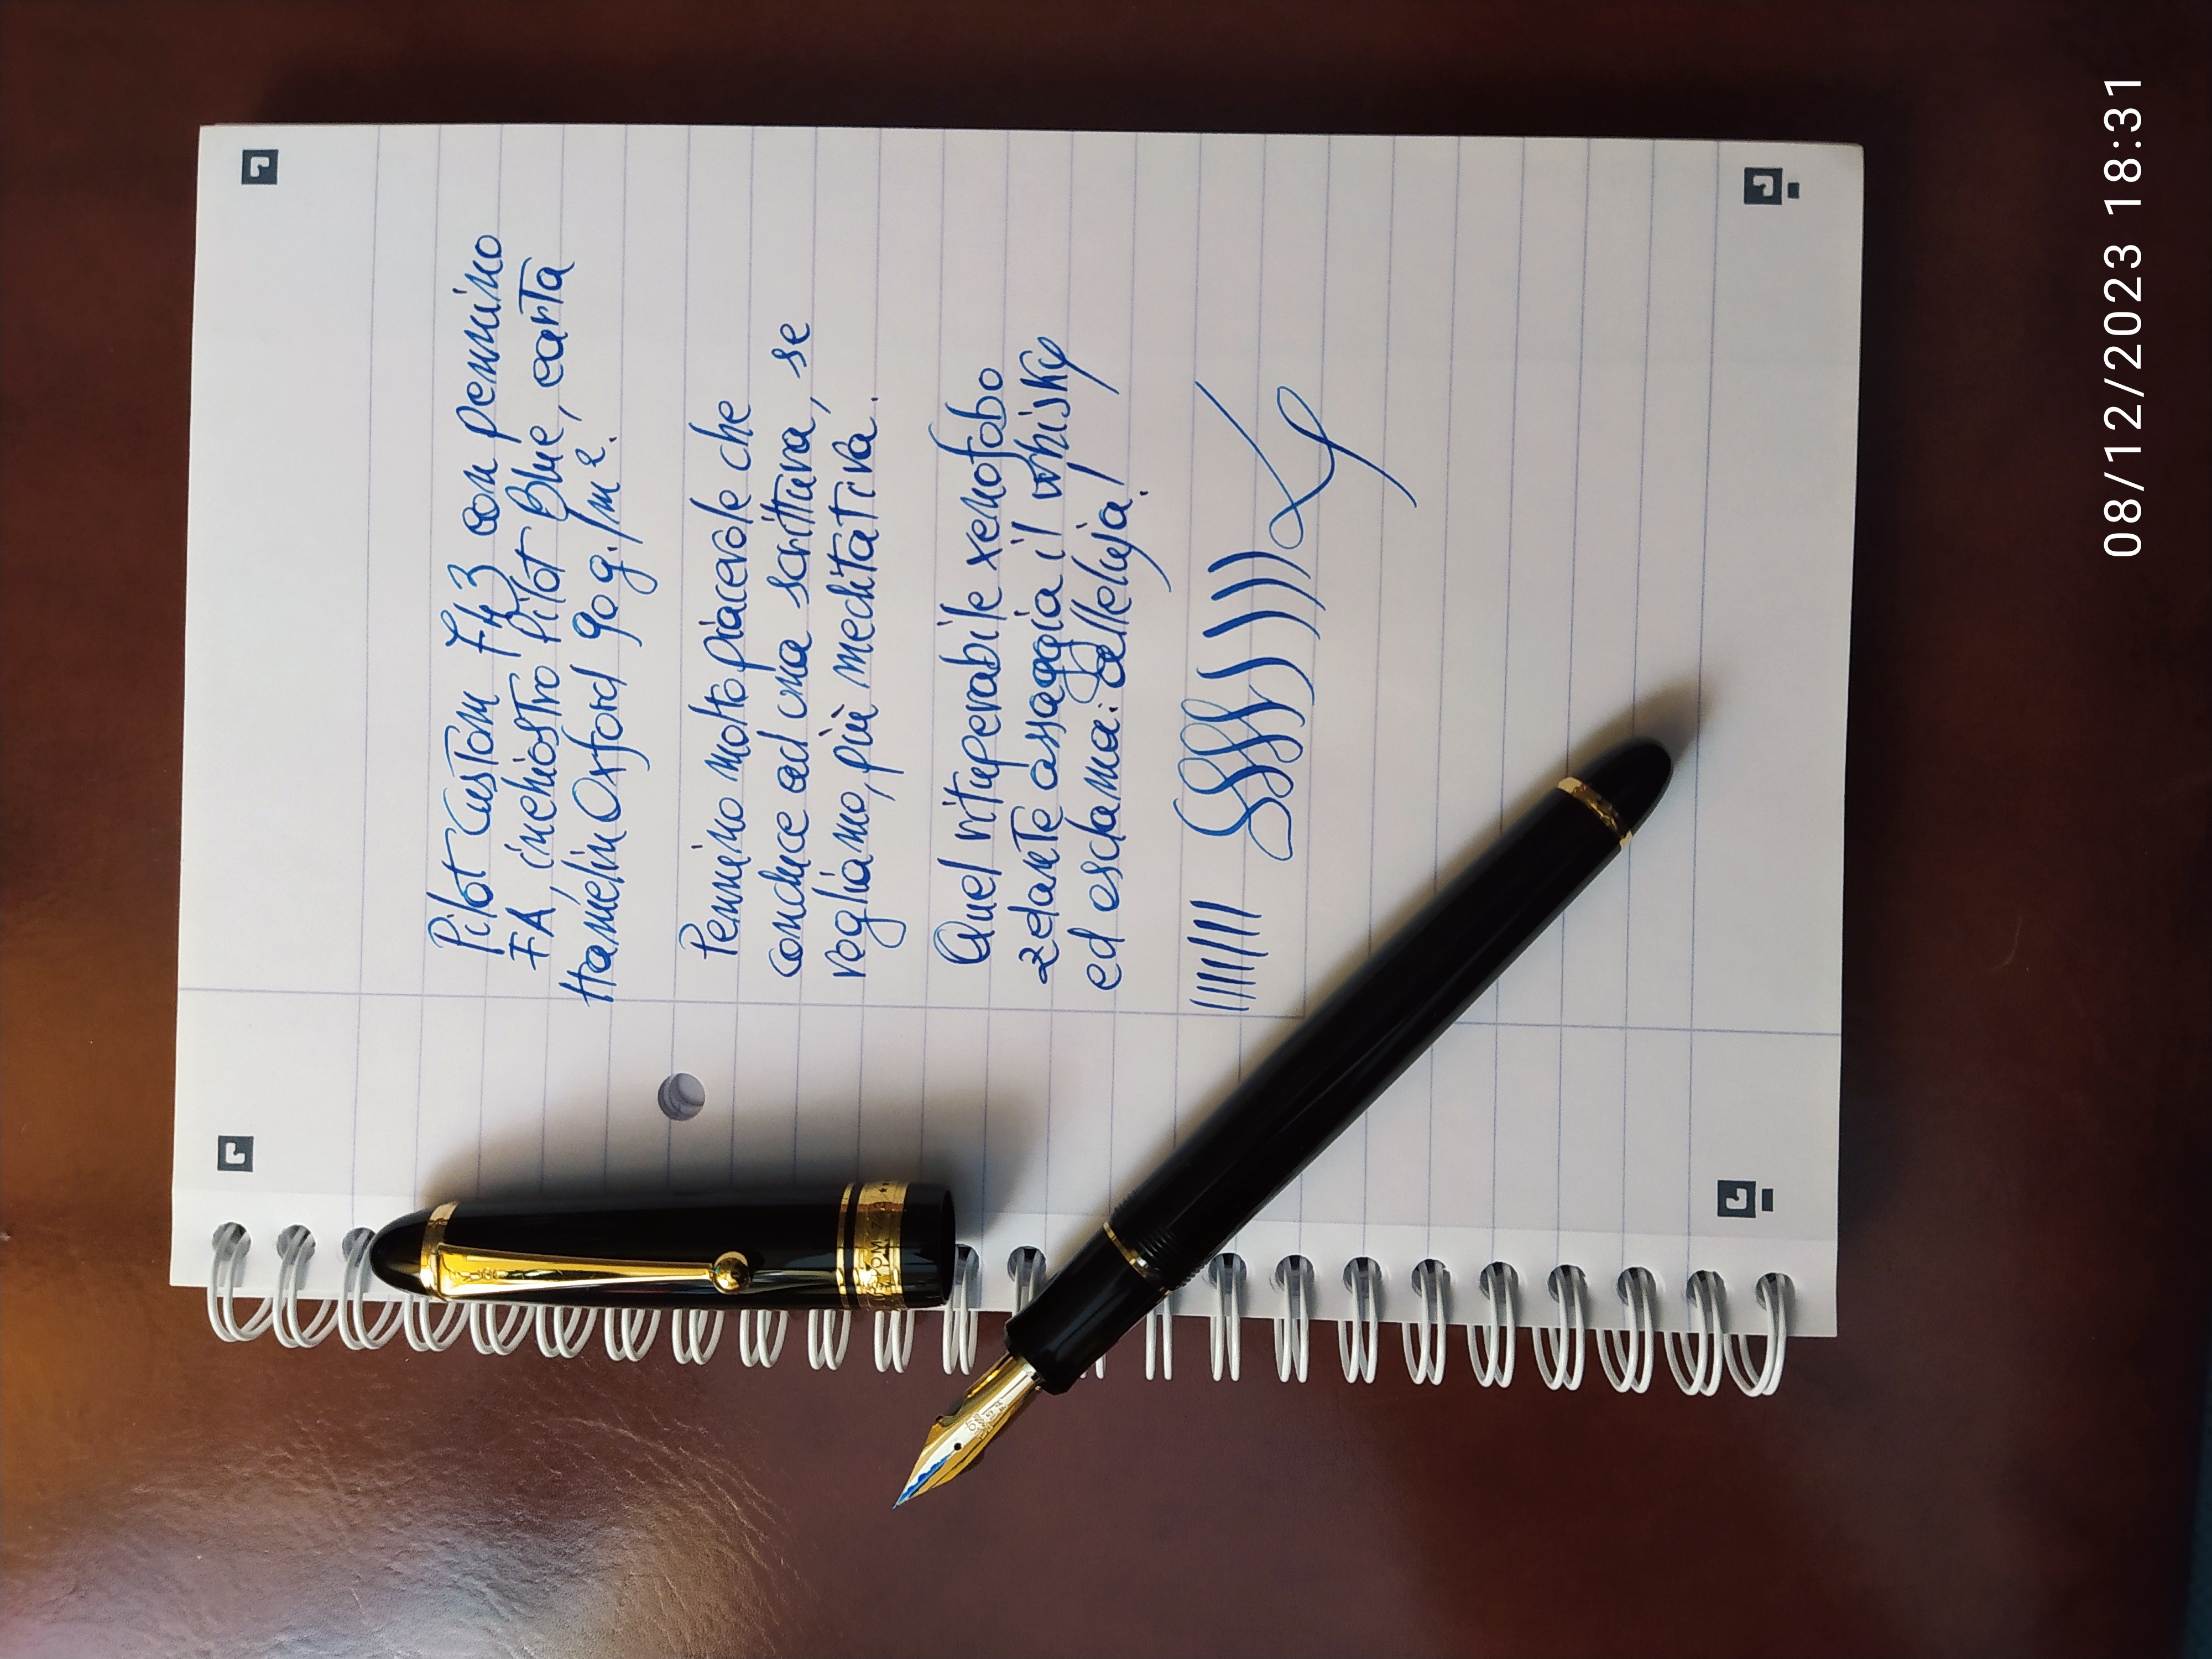 Pilot Custom 743 con pennino
FA, inchiostro Pilot Blue, carta
Hamelin Oxford 90 g./m².
Pennino molto piacevole che
conduce ad una scrittura, se
vogliamo, più meditativa.
Quel vituperabile xenofobo
zelante assaggia il whisky
ed esclama: alleluja!
08/12/2023 18:31